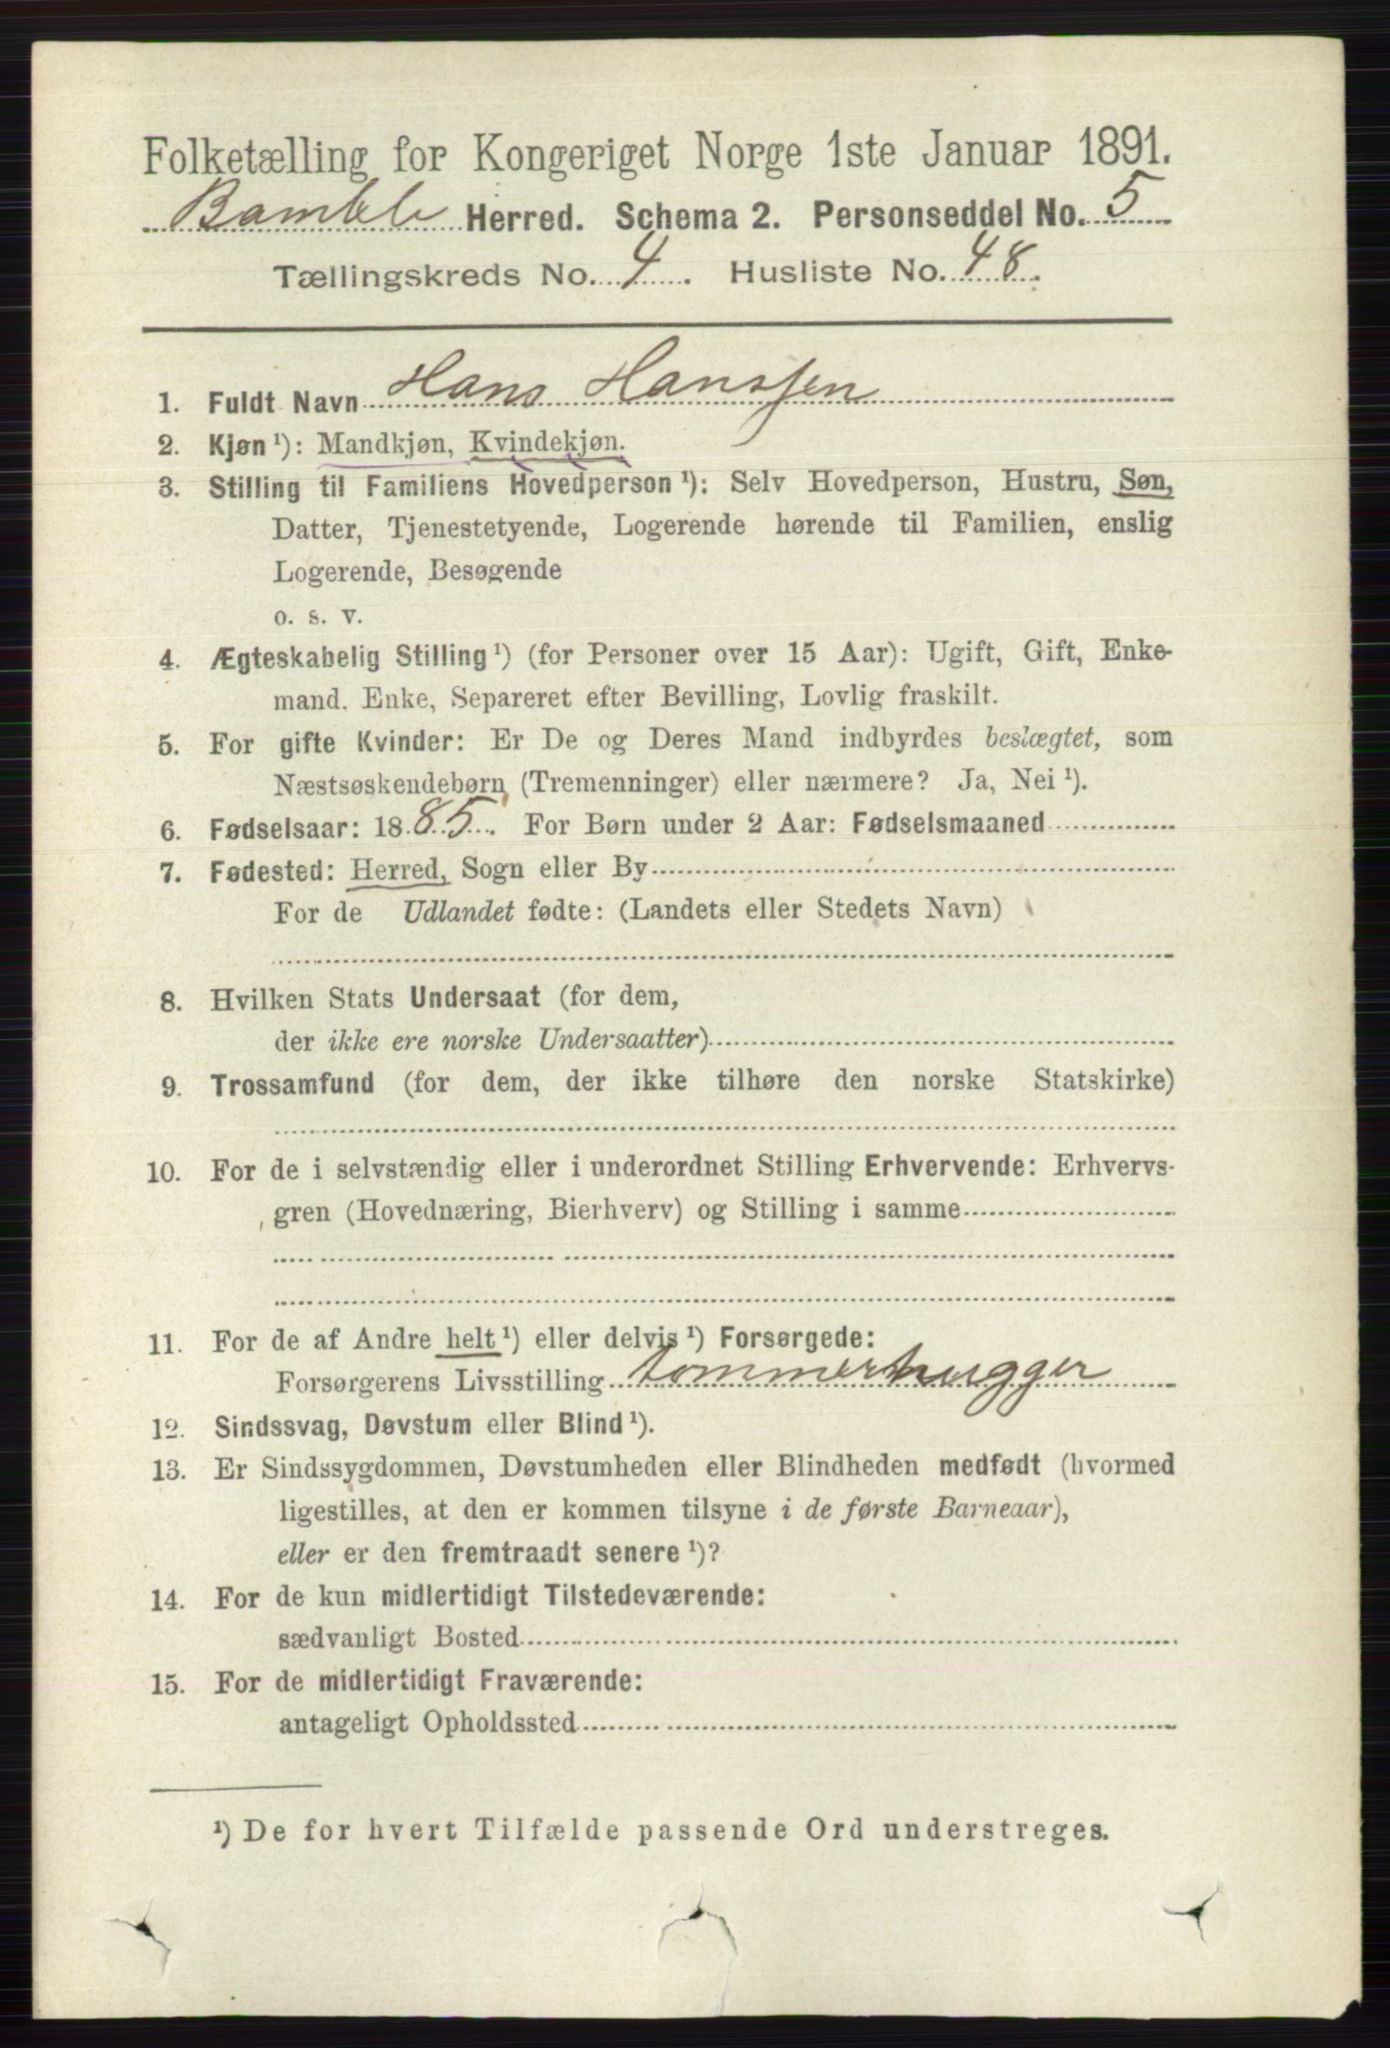 Folketælling for Kongeriget Norge 1ste Januar 1891.
Bamble Herred. Schema 2. Personseddel No. 5
Tællingskreds No. 4. Husliste No. 48.
1. Fuldt Navn Hans Hanssen
2. Kjøn ¹): Mandkjøn, Kvindekjøn.
3. Stilling til Familiens Hovedperson ¹): Selv Hovedperson, Hustru, Søn,
Datter, Tjenestetyende, Logerende hørende til Familien, enslig
Logerende, Besøgende
o. s. v.
4. Ægteskabelig Stilling ¹) (for Personer over 15 Aar): Ugift, Gift, Enke-
mand. Enke, Separeret efter Bevilling, Lovlig fraskilt.
5. For gifte Kvinder: Er De og Deres Mand indbyrdes beslægtet, som
Næstsøskendebørn (Tremenninger) eller nærmere? Ja, Nei ¹).
6. Fødselsaar: 1885. For Børn under 2 Aar: Fødselsmaaned
7. Fødested: Herred, Sogn eller By
For de Udlandet fødte: (Landets eller Stedets Navn)
8. Hvilken Stats Undersaat (for dem,
der ikke ere norske Undersaatter)
9. Trossamfund (for dem, der ikke tilhøre den norske Statskirke)
10. For de i selvstændig eller i underordnet Stilling Erhvervende: Erhvervs-
gren (Hovednæring, Bierhverv) og Stilling i samme
11. For de af Andre helt ¹) eller delvis ¹) Forsørgede:
Forsørgerens Livsstilling tommerhugger
12. Sindssvag, Døvstum eller Blind ¹).
13. Er Sindssygdommen, Døvstumheden eller Blindheden medfødt (hvormed
ligestilles, at den er kommen tilsyne i de første Barneaar),
eller er den fremtraadt senere ¹)?
14. For de kun midlertidigt Tilstedeværende:
sædvanligt Bosted
15. For de midlertidigt Fraværende:
antageligt Opholdssted
¹) De for hvert Tilfælde passende Ord understreges.